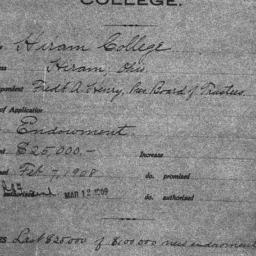 COLLEGE.
Hiram College
Hiram, Ohio
Fredk A. Henry, Pres Board of Trustees
of Application
Endowment
$25,000.- Increase
Feb 7, 1908 do. promised
MAR 12 1909 do. authorized
Last $25000 of $100,000 new endowment